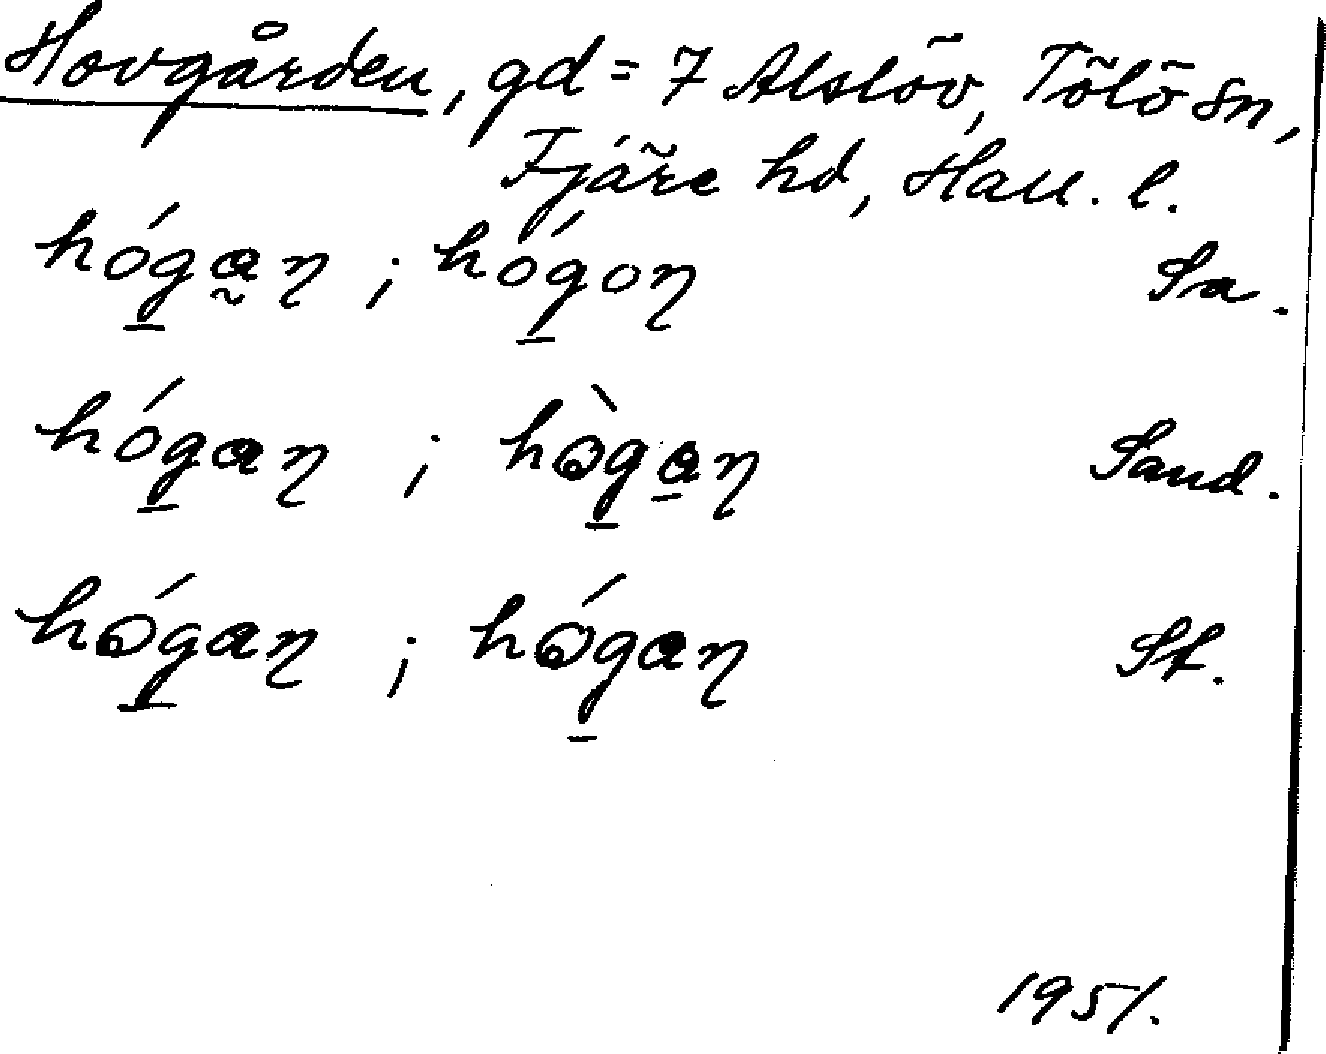 Hovgården, gd = 7 Alslöv, Tölö sn,
Fjäre hd, Hall. l.
hóg̲a̰ɳ ; hóg̲oɳ Sa.
hóg̲aɳ ; hòg̲a̲ɳ Sand.
hóg̲aɳ ; hóg̲aɳ St.
1951.